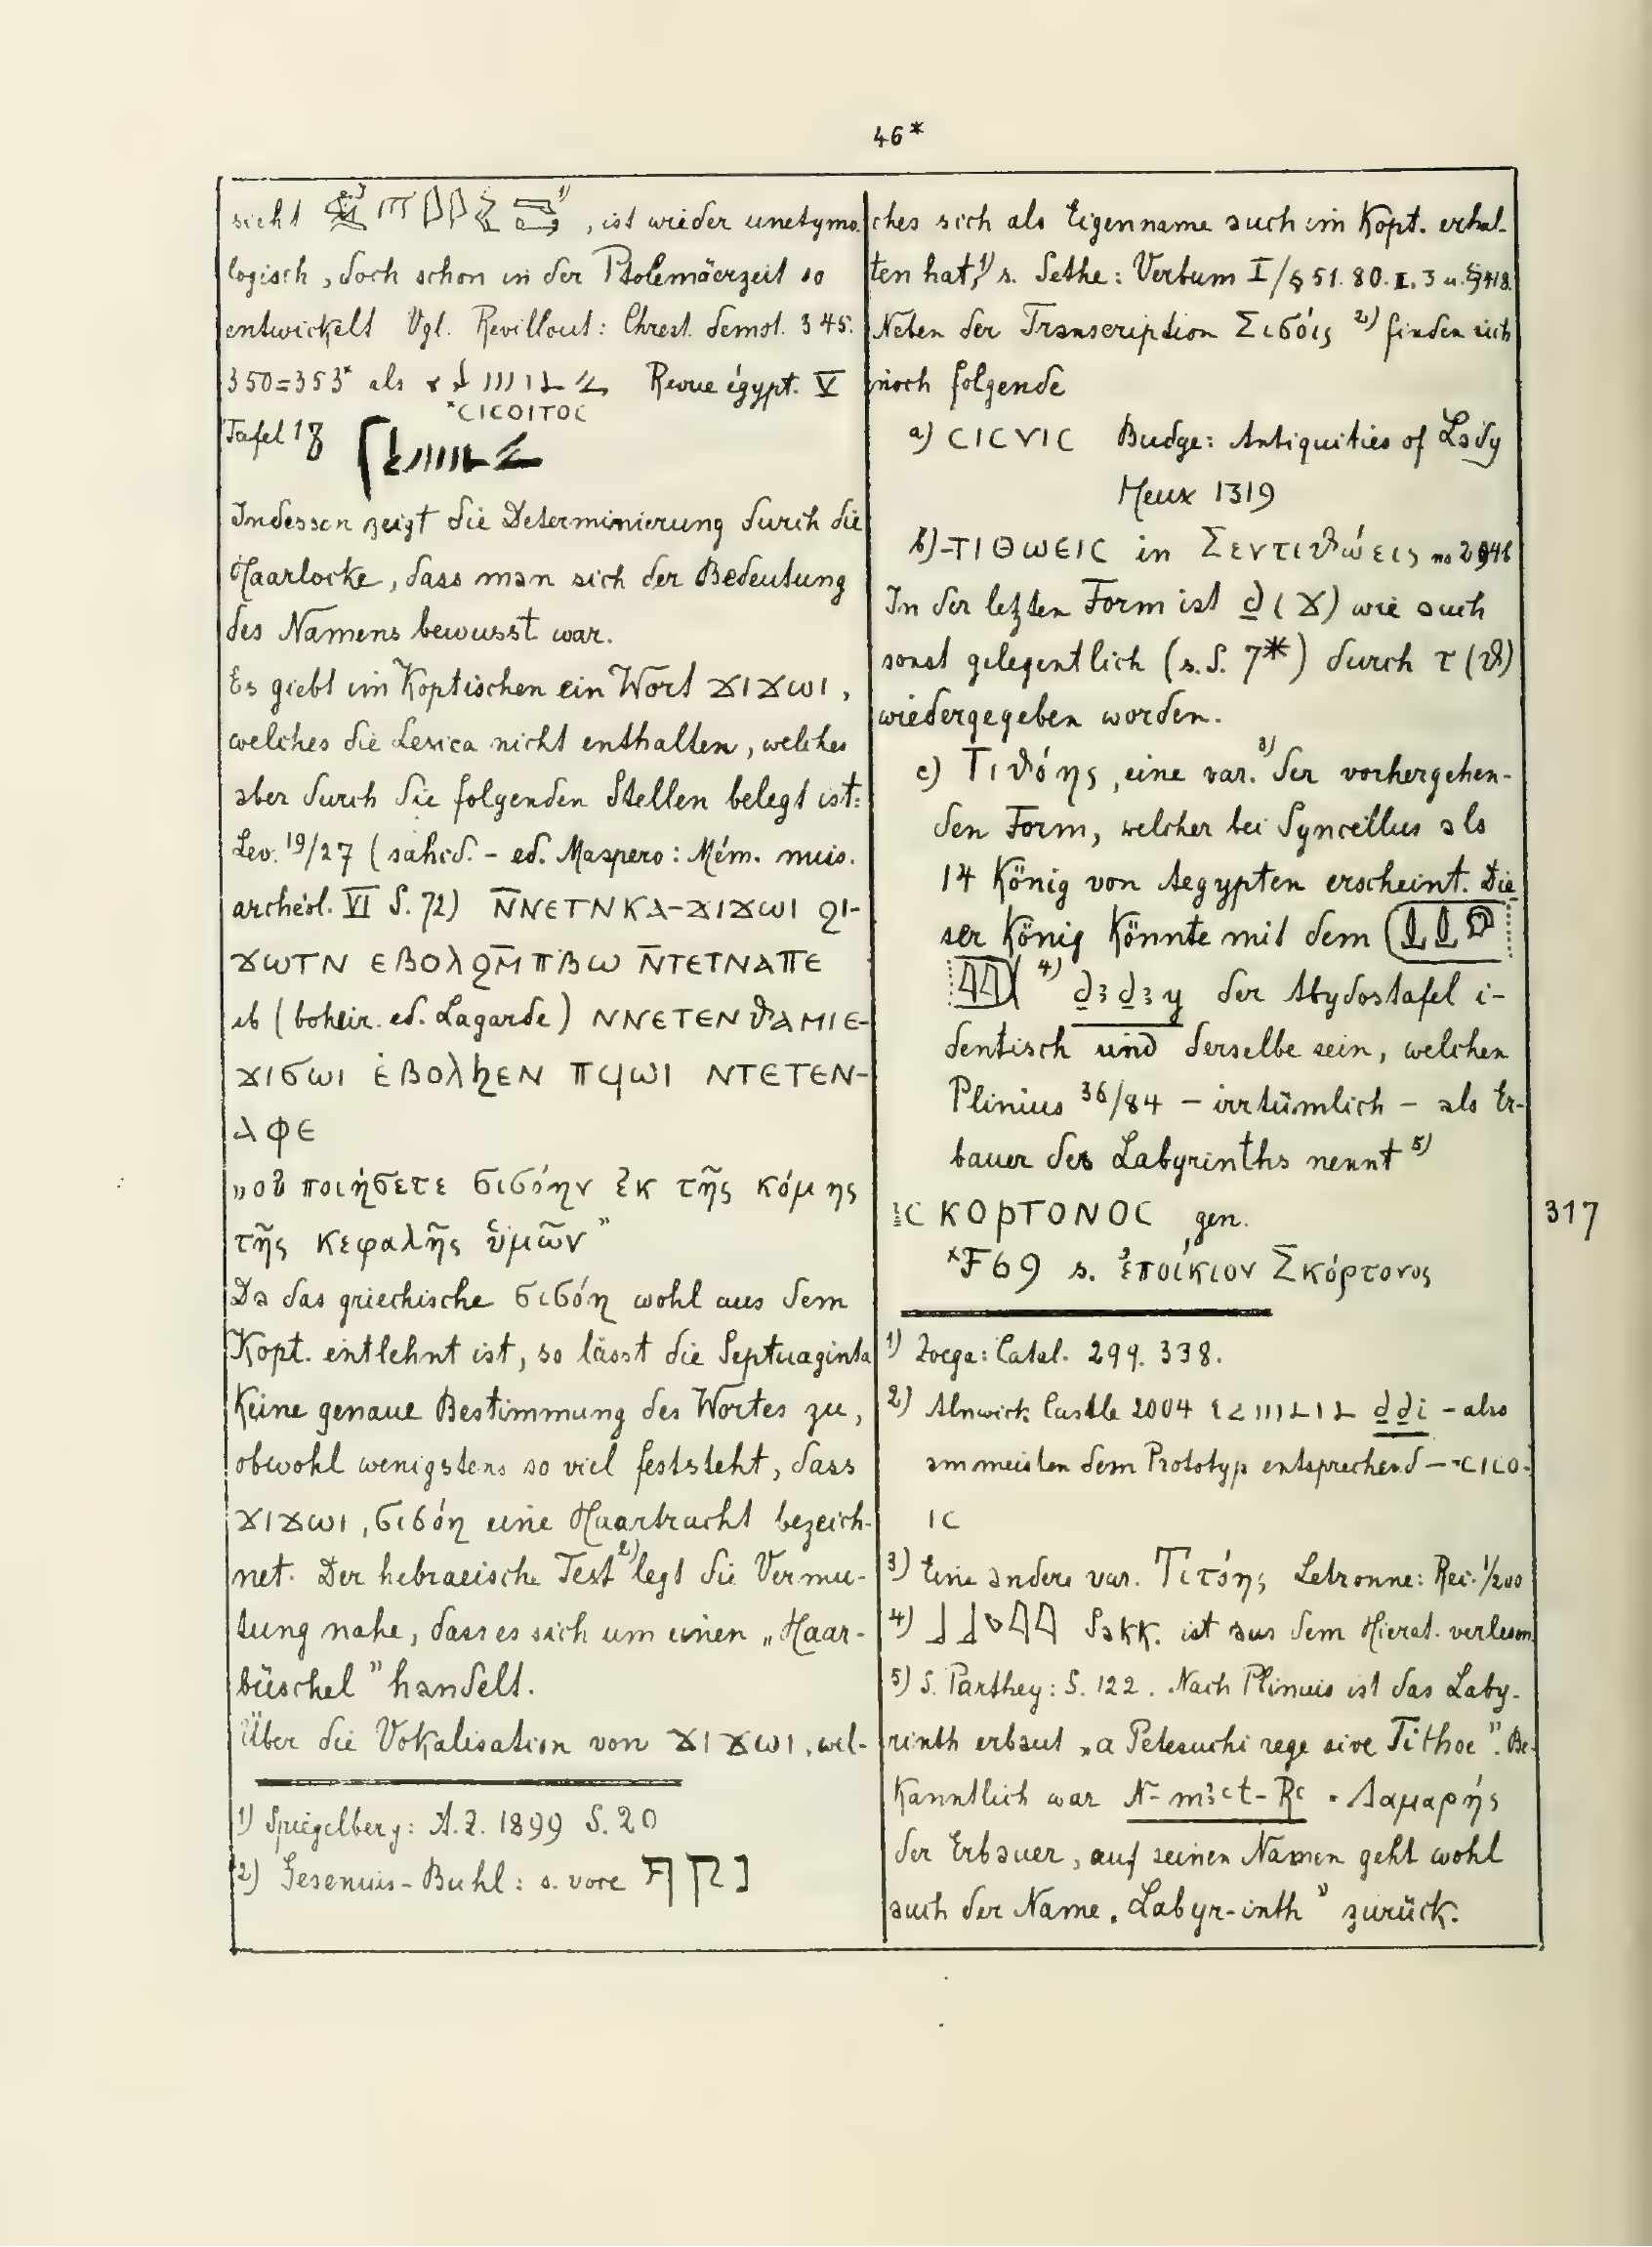 46*
sieht , ist wieder unetymo-
logisch, doch schon in der Ptolemäerzeit so
entwickelt Vgl. Revillout: Chrest. demot. 345.
350=353* als Revue égypt. V
*CICOITOC
Tafel 18
Indessen zeigt die Determinierung durch die
Haarlocke, dass man sich der Bedeutung
des Namens bewusst war.
Es giebt im Koptischen ein Wort ϪⲒϪⲰⲒ,
welches die Lexica nicht enthalten, welches
aber durch die folgenden Stellen belegt ist:
Lev. 19/27 (sahid. - ed. Maspero: Mém. miss.
archéol. VI S. 72) N̄ⲚⲈⲦⲚⲔⲀ-ϪⲒϪⲰⲒ ϨⲒ-
ϪⲰⲦⲚ ⲈⲂⲞⲖϨM̄ⲠⲂⲰ N̄ⲦⲈⲦⲚⲀⲠⲈ
ib (boheir. ed. Lagarde) ⲚⲚⲈⲦⲈⲚⲐⲀⲘⲒⲈ-
ϪⲒϬⲰⲒ ⲈⲂⲞⲖϦⲈⲚ ⲠϤⲰⲒ ⲚⲦⲈⲦⲈⲚ-
ⲀⲪⲈ
„οὐ ποιήσετε σισόην ἐκ τῆς κόμης
τῆς κεφαλῆς ὑμῶν”
Da das griechische σισόη wohl aus dem
Kopt. entlehnt ist, so lässt die Septuaginta
keine genaue Bestimmung des Wortes zu,
obwohl wenigstens so viel feststeht, dass
ϪⲒϪⲰⲒ, σισόη eine Haartracht bezeich-
net. Der hebraeische Text 2) legt die Vermu-
tung nahe, dass es sich um einen „Haar-
büschel” handelt.
Über die Vokalisation von ϪⲒϪⲰⲒ, wel-
1) Spiegelberg: A.Z. 1899 S. 20
2) Gesenius-Buhl: s. voce
ches sich als Eigenname auch im Kopt. erhal-
ten hat,1) s. Sethe: Verbum I/§ 51. 80. II. 3 u. § 418.
Neben der Transcription Σισόις 2) finden sich
noch folgende
a) CICVIC Budge: Antiquities of Lady
Meux 1319
b) -ΤΙΘωΕΙC in Σεντιθώεις no
In der letzten Form ist ḏ (Ϫ) wie auch
sonst gelegentlich (s. S. 7*) durch τ (ϑ)
wiedergegeben worden.
c) Τιθόης, eine var. 3) der vorhergehen-
den Form, welcher bei Syncellus als
14 König von Aegypten erscheint. Die
ser König könnte mit dem
4) ḏꜣḏꜣy der Abydostafel i-
dentisch und derselbe sein, welchen
Plinius 36/84 – irrtümlich – als Er-
bauer des Labyrinths nennt 5)
ΙC ΚΟΡΤΟΝΟC gen. 317
*F69 s. ἐποίκιον Σκόρτονος
1) Zoega: Catal. 299. 338.
2) Alnwick Castle 2004 ḏḏi – also
am meisten dem Prototyp entsprechend – -CICO-
IC
3) Eine andere var. Τιτόης Letronne: Rec. 1/200
4) Sakk. ist aus dem Hierat. verlesen
5) S. Parthey: S. 122. Nach Plinius ist das Laby-
rinth erbaut „a Petesuchi rege sive Tithoe”. Be-
kanntlich war N-mꜣꜥt-Rꜥ · Λαμαρής
der Erbauer, auf seinen Namen geht wohl
auch der Name „Labyr-inth” zurück.